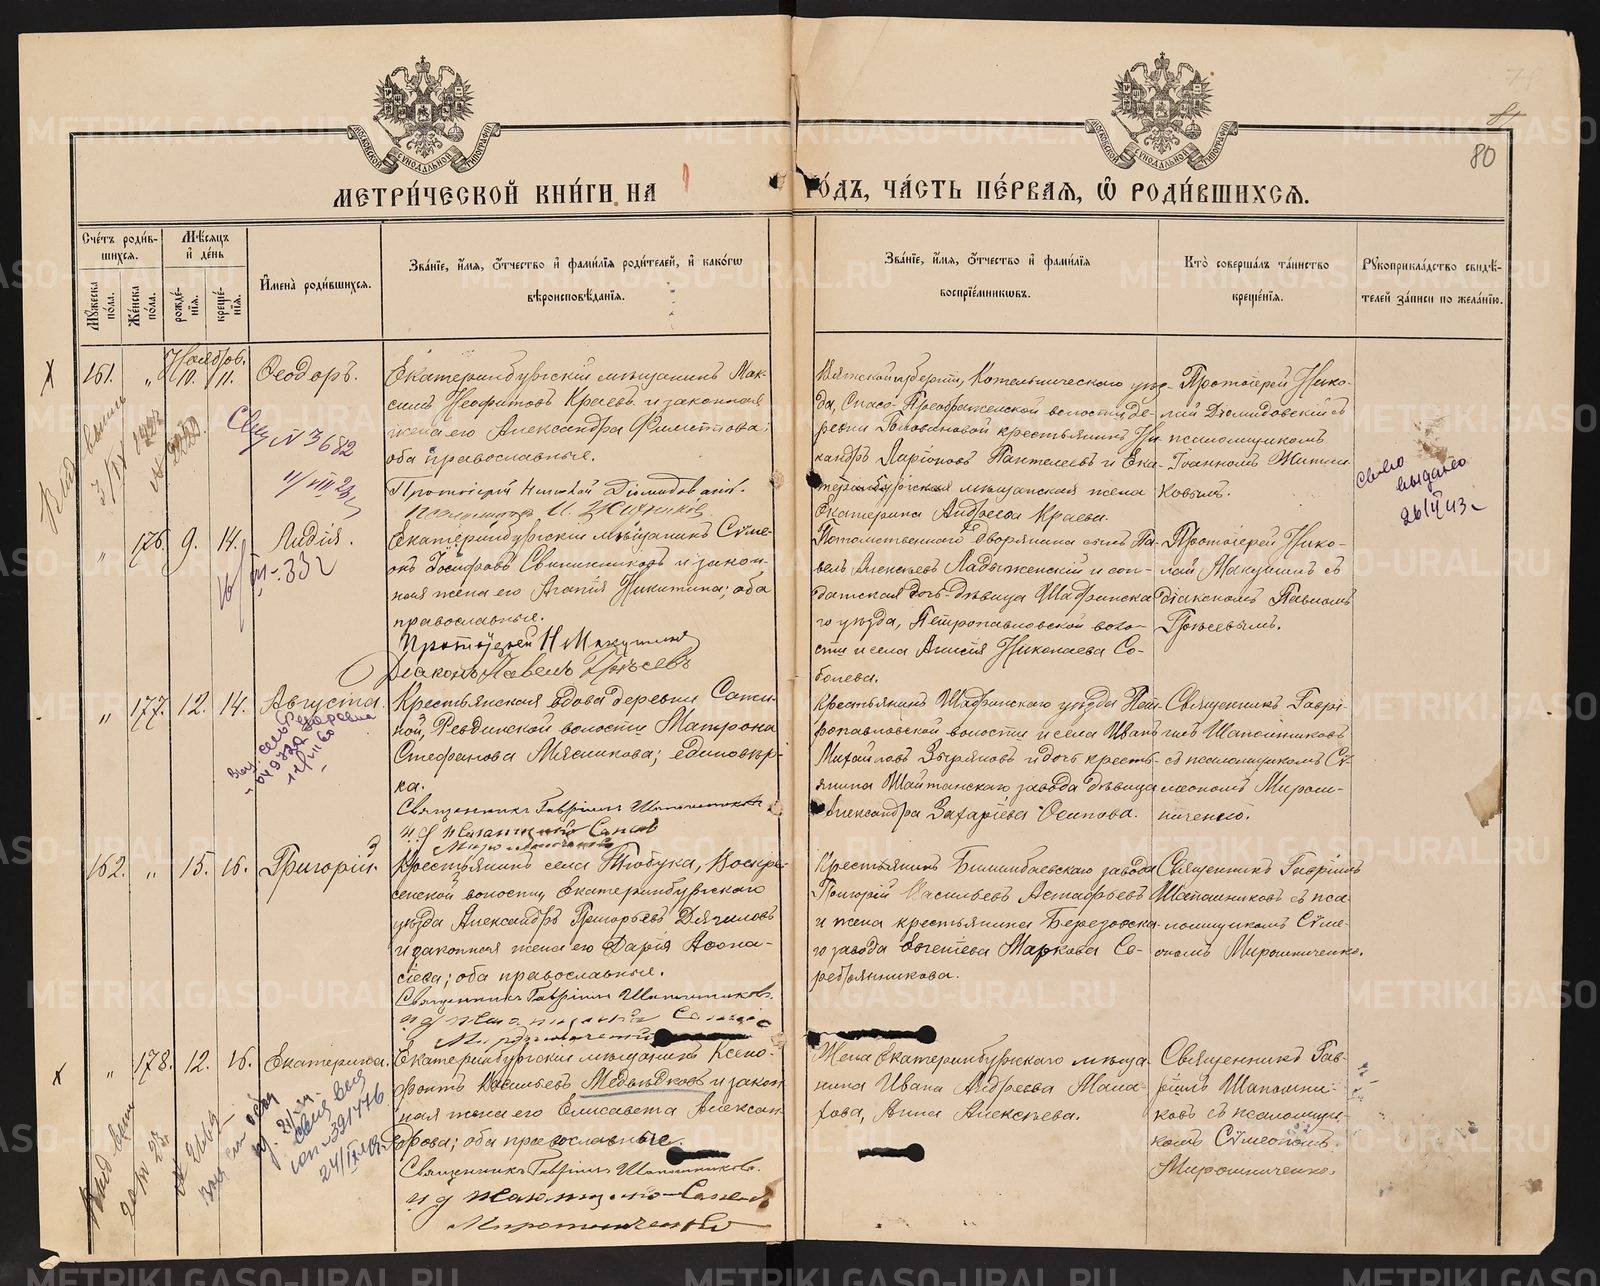 80
МЕТРИ́ЧЕСКОЙ КНИ́ГИ НА
ГО́ДЪ, ЧА́СТЬ ПЕ́РВАЯ, Ѽ РОДИ́ВШИХСѦ.
Сче́тъ роди́в-
шихсѧ.
Мѣсѧцъ
и де́нь
Мꙋжеска по́ла.
Же́нска по́ла.
рожде́-
нїѧ.
креще́-
нїѧ.
Имена̀ роди́вшихсѧ.
Зва́нїе, и́мѧ, ѻтчество и фами́лїѧ роди́телей, и како́гѡ
вѣроисповѣ́данїѧ.
Зва́нїе, и́мѧ, ѻтчество и фами́лїѧ
воспрїе́мникѡвъ.
Кто̀ соверша́лъ та́инство
креще́нїѧ.
Рꙋкоприкла́дство свидѣ́-
телей за́писи по жела́нїю.
161. „ Ноябрь. 10. 11. Ѳеодоръ.
Екатеринбургскій мѣщанинъ Мак-
симъ Неофитовъ Краевъ и законная
жена его Александра Филиппова;
оба православные.
Протоіерей Николай Діомидовскій.
Вятской губерніи, Котельническаго уѣз-
да, Спасо-Преображенской волости де-
ревни Головиновой крестьянинъ Ни-
кандръ Ларіоновъ Пантелеевъ и Ека-
теринбургская мѣщанская жена
Екатерина Андреева Краева.
Протоіерей Нико-
лай Діомидовскій съ
псаломщикомъ
Іоанномъ Житни-
ковымъ.
Свид № 3682
11/VIII 23
выдано
26/II 43
„ 176. 9. 14. Лидія.
Екатеринбургскій мѣщанинъ Сѵме-
онъ Іосифовъ Свинниковъ и закон-
ная жена его Агапія Никитина; оба
православные.
Протоіерей Н Макушинъ
Діаконъ Павелъ Гдѣсевъ
Потомственнаго дворянина сынъ Па-
велъ Алексѣевъ Ладыженскій и сол-
датская дочь дѣвица Шадринска-
го уѣзда, Петропавловской воло-
сти и села Анисія Николаева Со-
болева.
Протоіерей Нико-
лай Макушинъ съ
діакономъ Павломъ
„ 177. 12. 14. Августа.
Крестьянская вдова деревни
Ревдинской волости Матрона
Стефанова Мясникова; единовѣр-
ка.
Священникъ Гавріилъ Шапошниковъ
Крестьянинъ Шадринскаго уѣзда Пет-
ропавловской волости и села Иванъ
Михайловъ Зыряновъ и дочь кресть-
янина Шайтанскаго завода дѣвица
Александра Захаріева Осипова.
Священникъ Гаврі-
илъ Шапошниковъ
съ псаломщикомъ Сѵ-
меономъ Мирош-
ниченко.
162. „ 15. 16. Григорій.
Крестьянинъ села Тюбука, Воскре-
сенской волости, Екатеринбургскаго
уѣзда Александръ Григорьевъ Дячиловъ
и законная жена его Дарія Аѳона-
сіева; оба православные.
Священникъ Гавріилъ Шапошниковъ.
Крестьянинъ Билимбаевскаго завода
Григорій Васильевъ Астафьевъ
и жена крестьянина Березовска-
го завода Евгенія Маркова Се-
ребрянникова.
Священникъ Гавріилъ
Шапошниковъ съ пса-
ломщикомъ Сѵме-
ономъ Мирошниченко.
„ 178. 12. 16. Екатерина.
Екатеринбургскій мѣщанинъ Ксено-
фонтъ Васильевъ Медвѣдковъ и закон
ная жена его Елисавета Алексан
дрова; оба православные.
Священникъ Гавріилъ Шапошниковъ.
Мирошниченко
Жена Екатеринбургскаго мѣща-
нина Ивана Андреева Мала-
хова, Анна Алексѣева.
Священникъ Гав-
ріилъ Шапошни-
ковъ съ псаломщи-
комъ Сѵмеономъ
Мирошниченко.